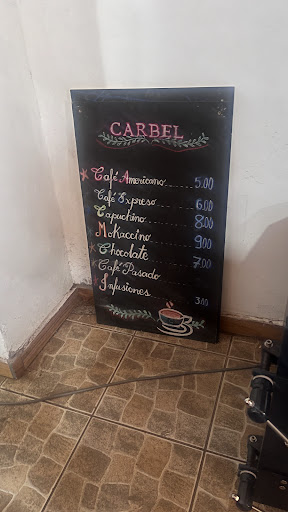 CARBEL
Café Americano 5.00
Café Expreso 6.00
Capuchino 8.00
Mokaccino 9.00
Chocolate 7.00
Café Pasado
Infusiones 3.00